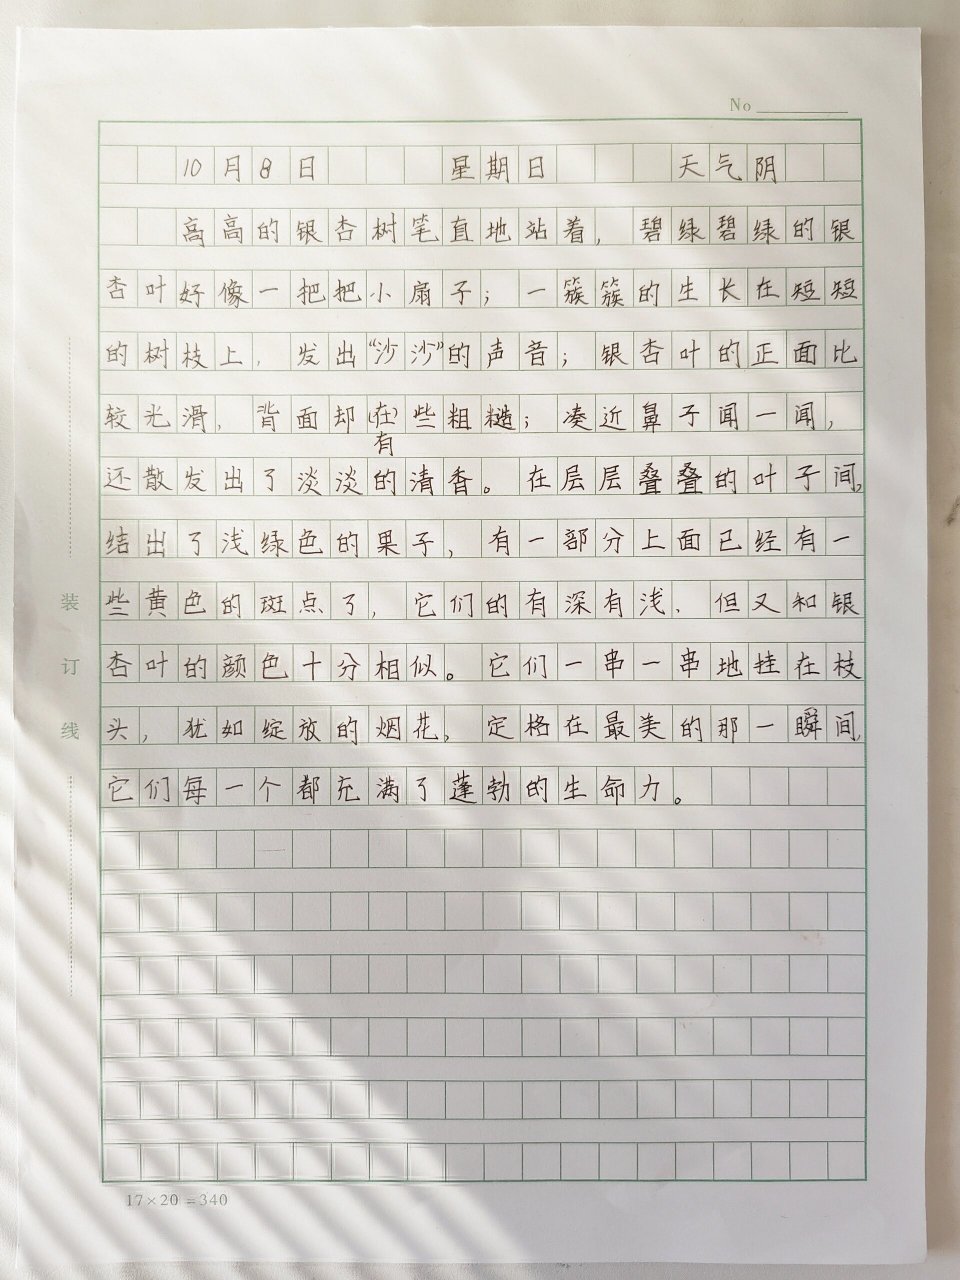 No
10月8日 星期日 天气阴
高高的银杏树笔直地站着，碧绿碧绿的银
杏叶好像一把把小扇子；一簇簇的生长在短短
的树枝上，发出“沙沙”的声音；银杏叶的正面比
较光滑，背面却(在)些粗糙；凑近鼻子闻一闻，
有
还散发出了淡淡的清香。在层层叠叠的叶子间，
结出了浅绿色的果子，有一部分上面已经有一
些黄色的斑点了，它们的有深有浅，但又和银
杏叶的颜色十分相似。它们一串一串地挂在枝
头，犹如绽放的烟花，定格在最美的那一瞬间，
它们每一个都充满了蓬勃的生命力。
装
订
线
17×20=340